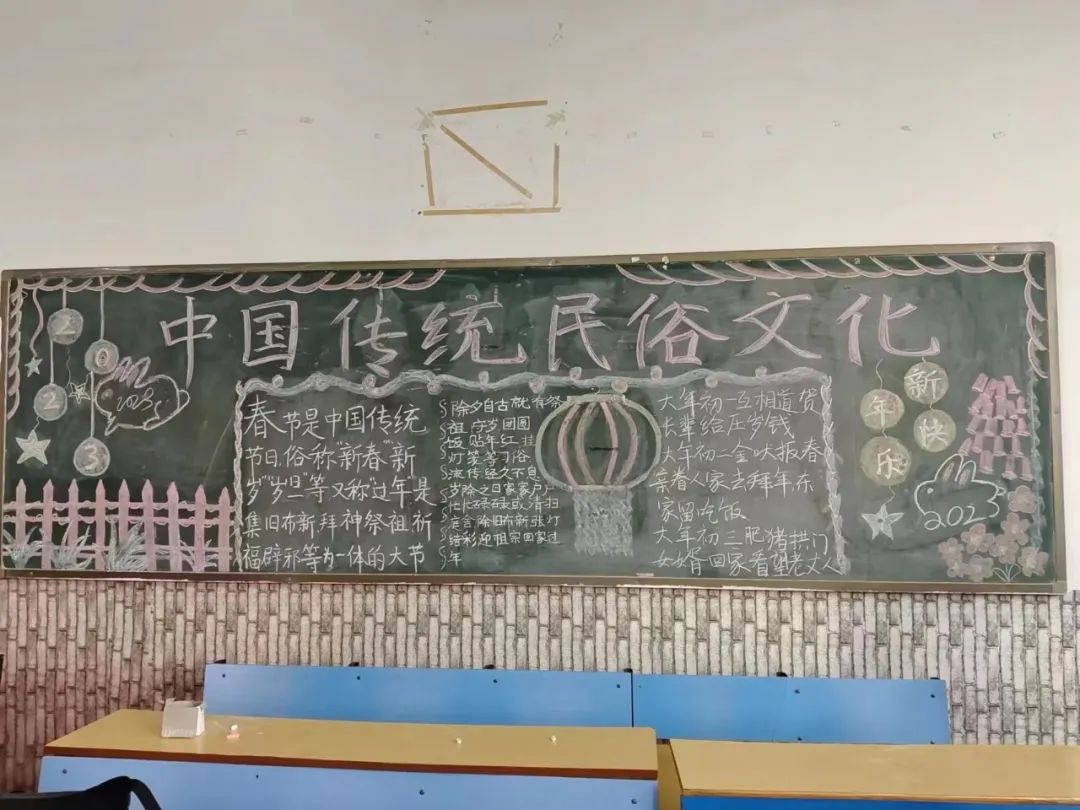 中国传统民俗文化
2
0
2
3
2023
春节是中国传统
节日,俗称"新春""新
岁""岁旦"等又称"过年"是
集旧布新拜神祭祖祈
福辟邪等为一体的大节
除夕自古就有祭
祖 守岁 团圆
饭 贴年红 挂
灯笼等习俗
流传经久不息
岁除之日家家户户
忙 清扫
庭舍除旧布新张灯
结彩迎祖宗回家过
年
大年初一互相道贺
长辈给压岁钱
大年初二金吠报春
亲眷人家去拜年,东
家留吃饭
大年初三肥猪拱门
女婿回家看望老丈人
新
年
快
乐
2023